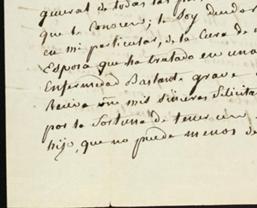 general de todas las
que le Conocen; le Soy deudor
en mi particular, de la Cura de
Esposa que ha tratado en una
Enfermedad Bastante grave
Reciva mil sinceras felicita
por la fortuna de tener un
hijo, que no puede menos de